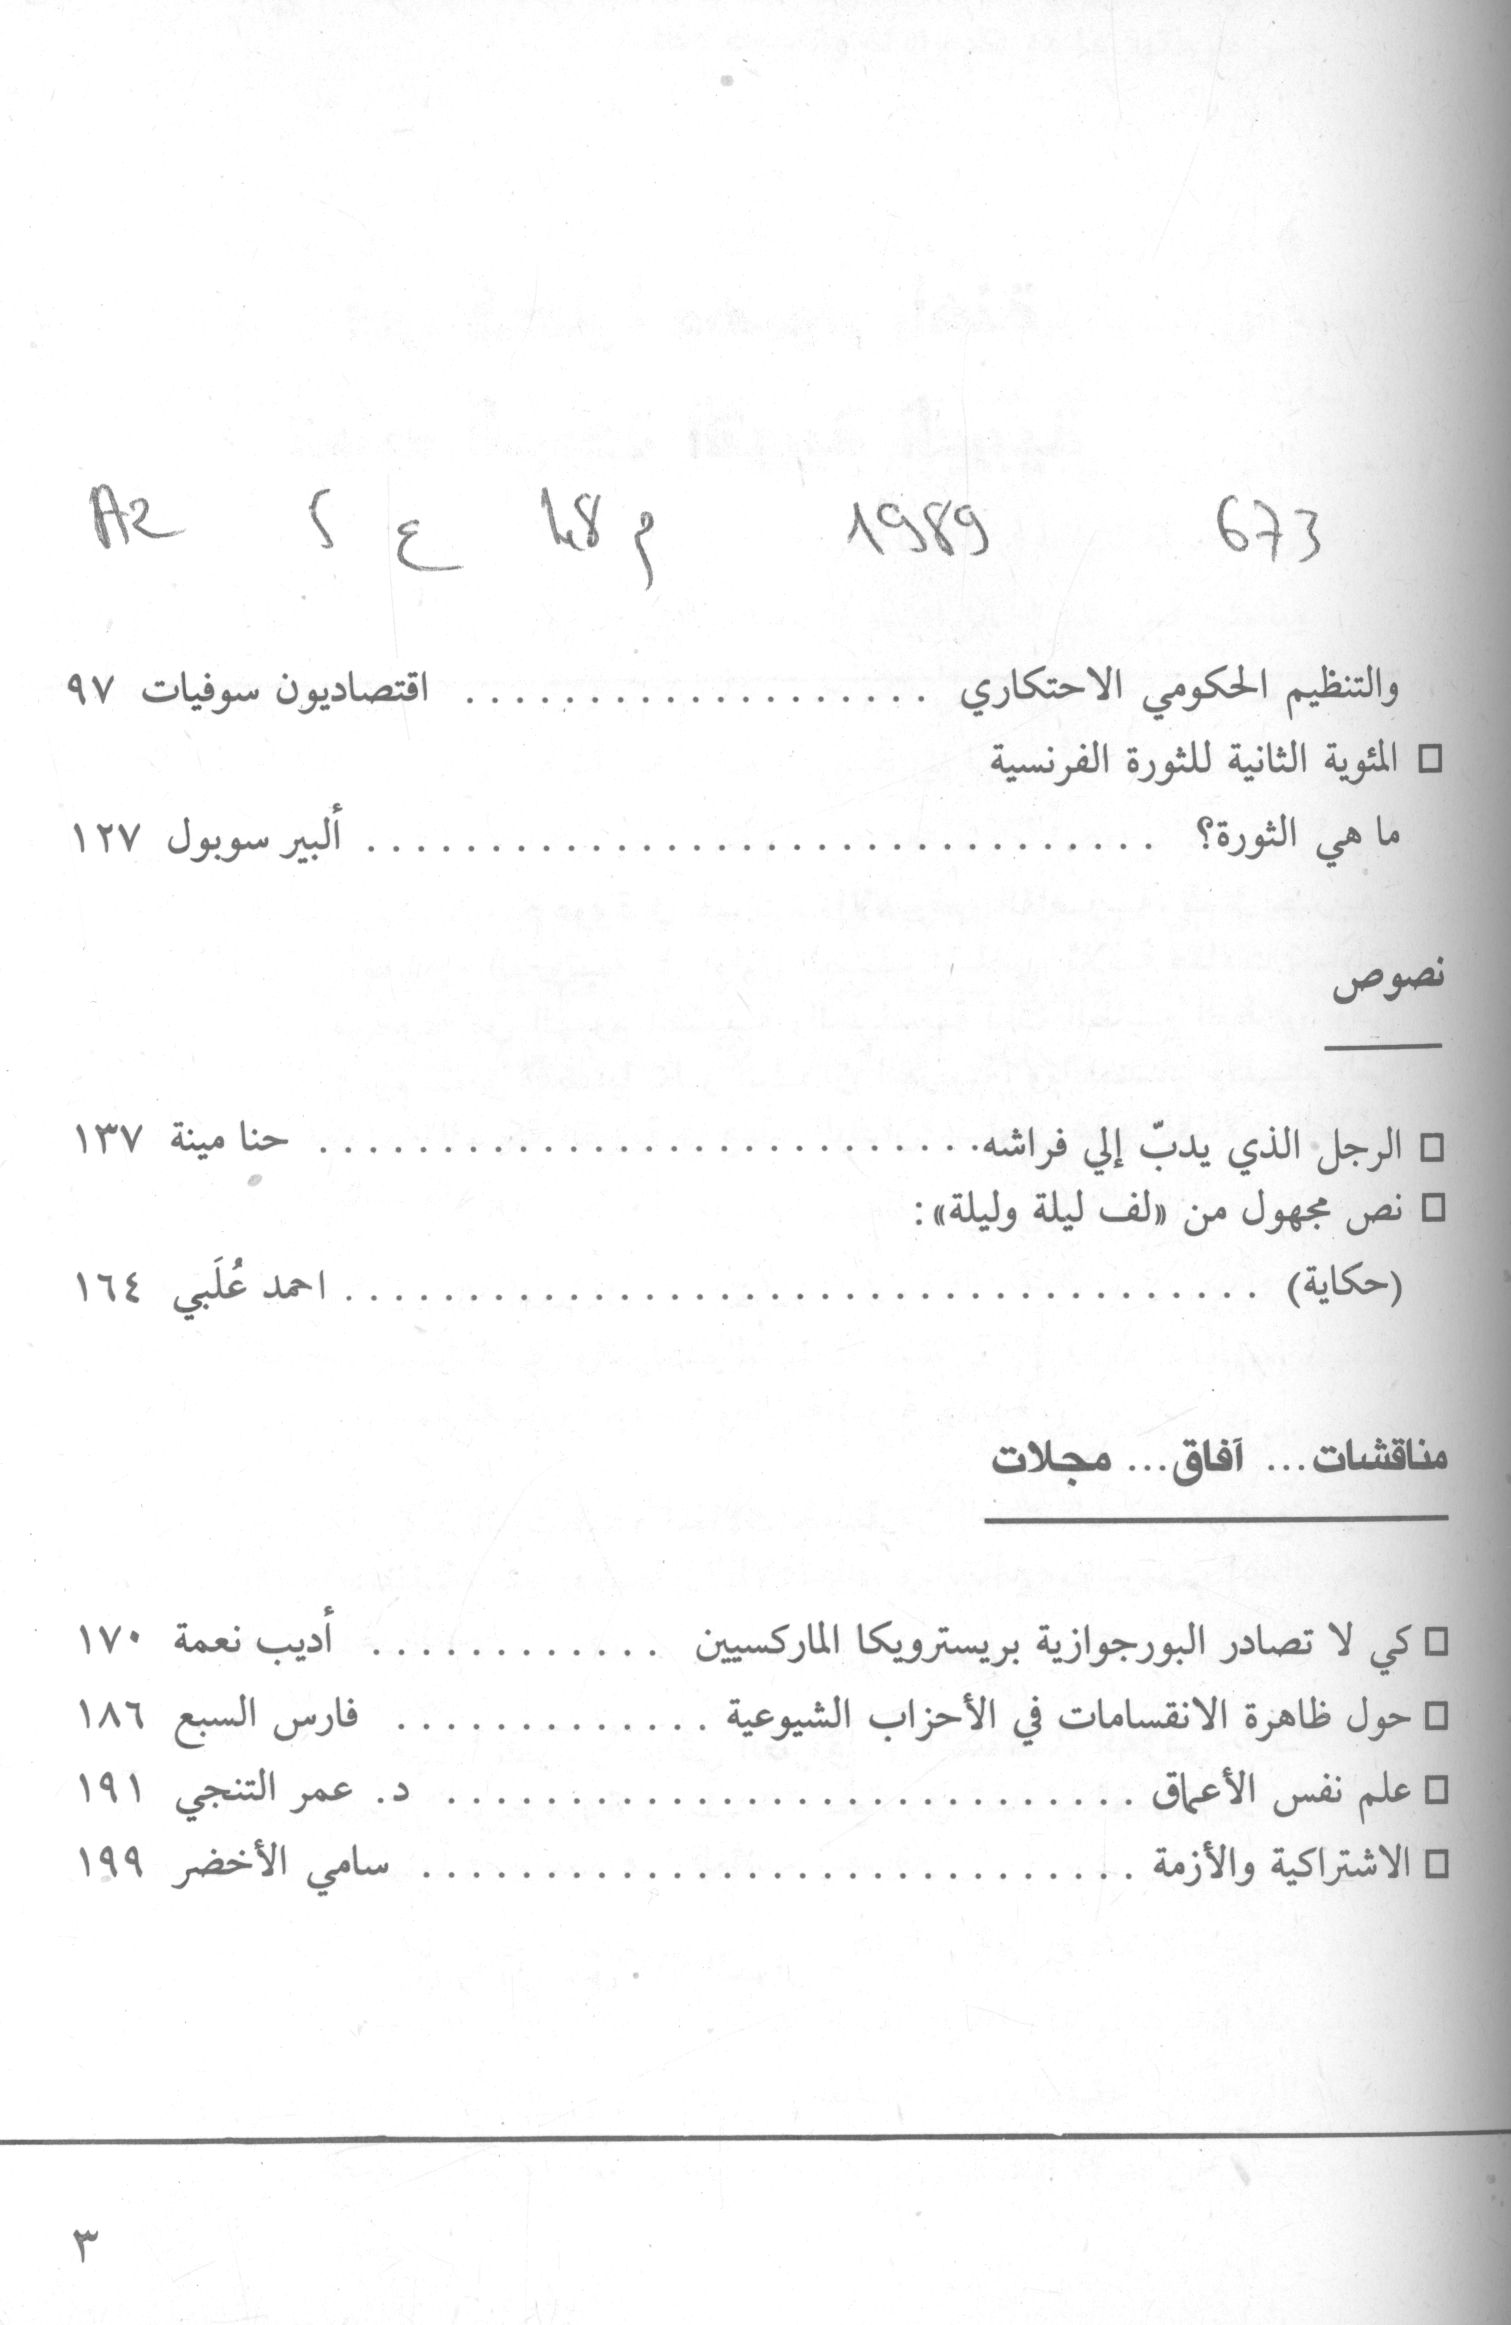 673 1989 م 48 ع ٢ A2
والتنظيم الحكومي الاحتكاري . . . . . . . . . . . . . . . . . . . اقتصاديون سوفيات ٩٧
□ المئوية الثانية للثورة الفرنسية
ما هي الثورة؟ . . . . . . . . . . . . . . . . . . . . . . . . . . . . . . . . ألبير سوبول ١٢٧
نصوص
□ الرجل الذي يدبّ إلي فراشه. . . . . . . . . . . . . . . . . . . . . . . . . . . حنا مينة ١٣٧
□ نص مجهول من «لف ليلة وليلة»:
(حكاية) . . . . . . . . . . . . . . . . . . . . . . . . . . . . . . . . . . . . . احمد عُلَبي ١٦٤
مناقشات... آفاق... مجلات
□ كي لا تصادر البورجوازية بريسترويكا الماركسيين . . . . . . . . . . . . أديب نعمة ١٧٠
□ حول ظاهرة الانقسامات في الأحزاب الشيوعية . . . . . . . . . . . . . فارس السبع ١٨٦
□ علم نفس الأعماق . . . . . . . . . . . . . . . . . . . . . . . . . . . . د. عمر التنجي ١٩١
□ الاشتراكية والأزمة . . . . . . . . . . . . . . . . . . . . . . . . . . . . . سامي الأخضر ١٩٩
٣